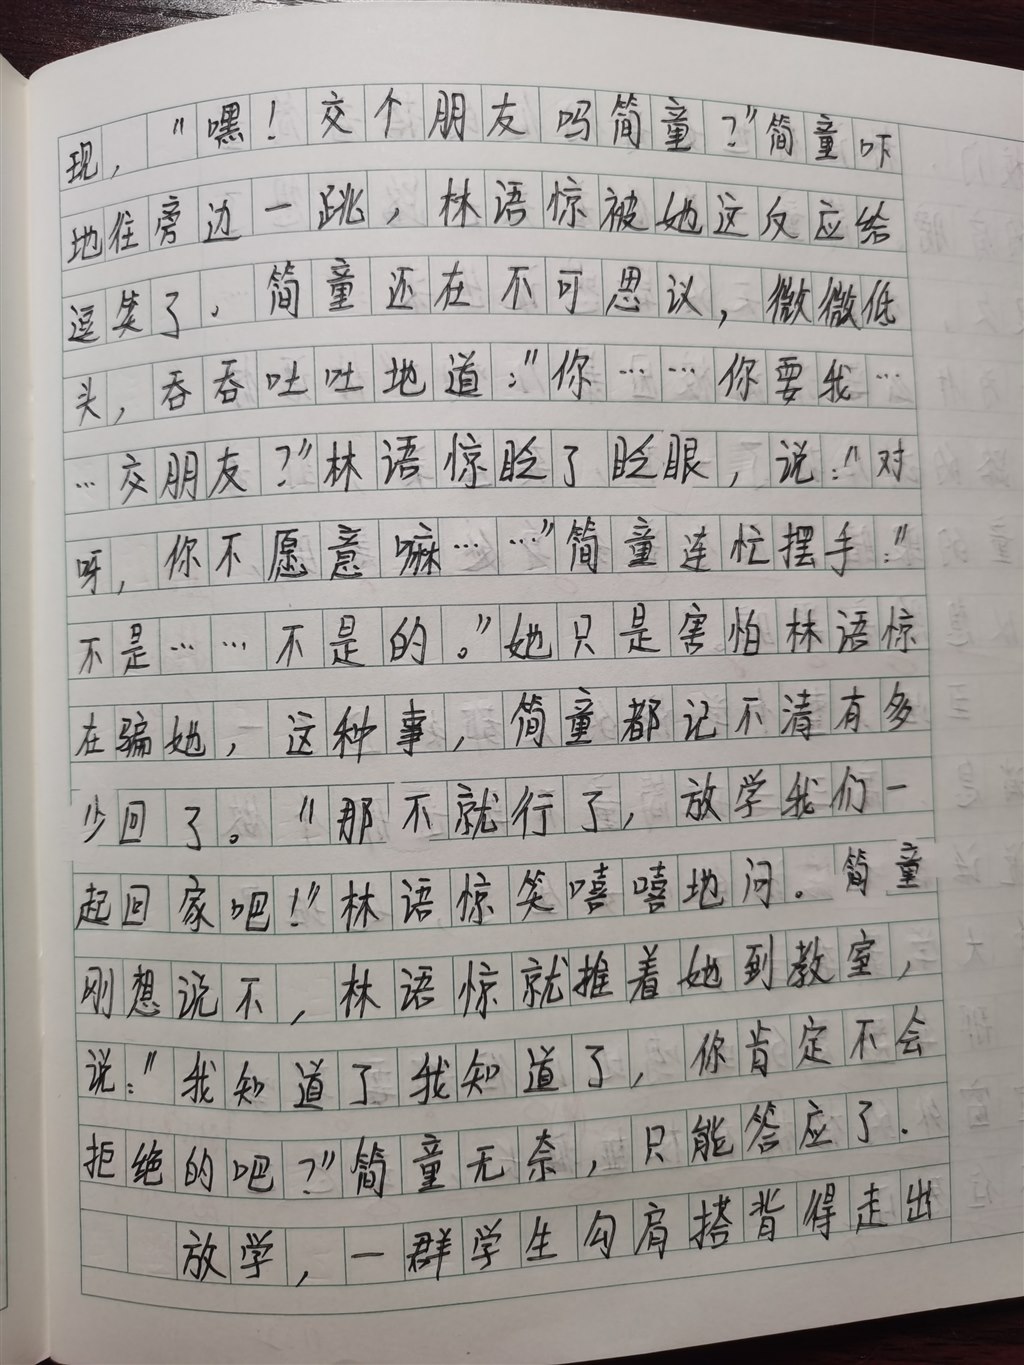 现，"嘿！交个朋友吗简童？"简童吓
地往旁边一跳，林语惊被她这反应给
逗笑了。简童还在不可思议，微微低
头，吞吞吐吐地道："你……你要我…
…交朋友？"林语惊眨了眨眼，说："对
呀，你不愿意嘛……"简童连忙摆手："
不是……不是的。"她只是害怕林语惊
在骗她，这种事，简童都记不清有多
少回了。"那不就行了，放学我们一
起回家吧！"林语惊笑嘻嘻地问。简童
刚想说不，林语惊就推着她到教室，
说："我知道了我知道了，你肯定不会
拒绝的吧？"简童无奈，只能答应了.
放学，一群学生勾肩搭背得走出